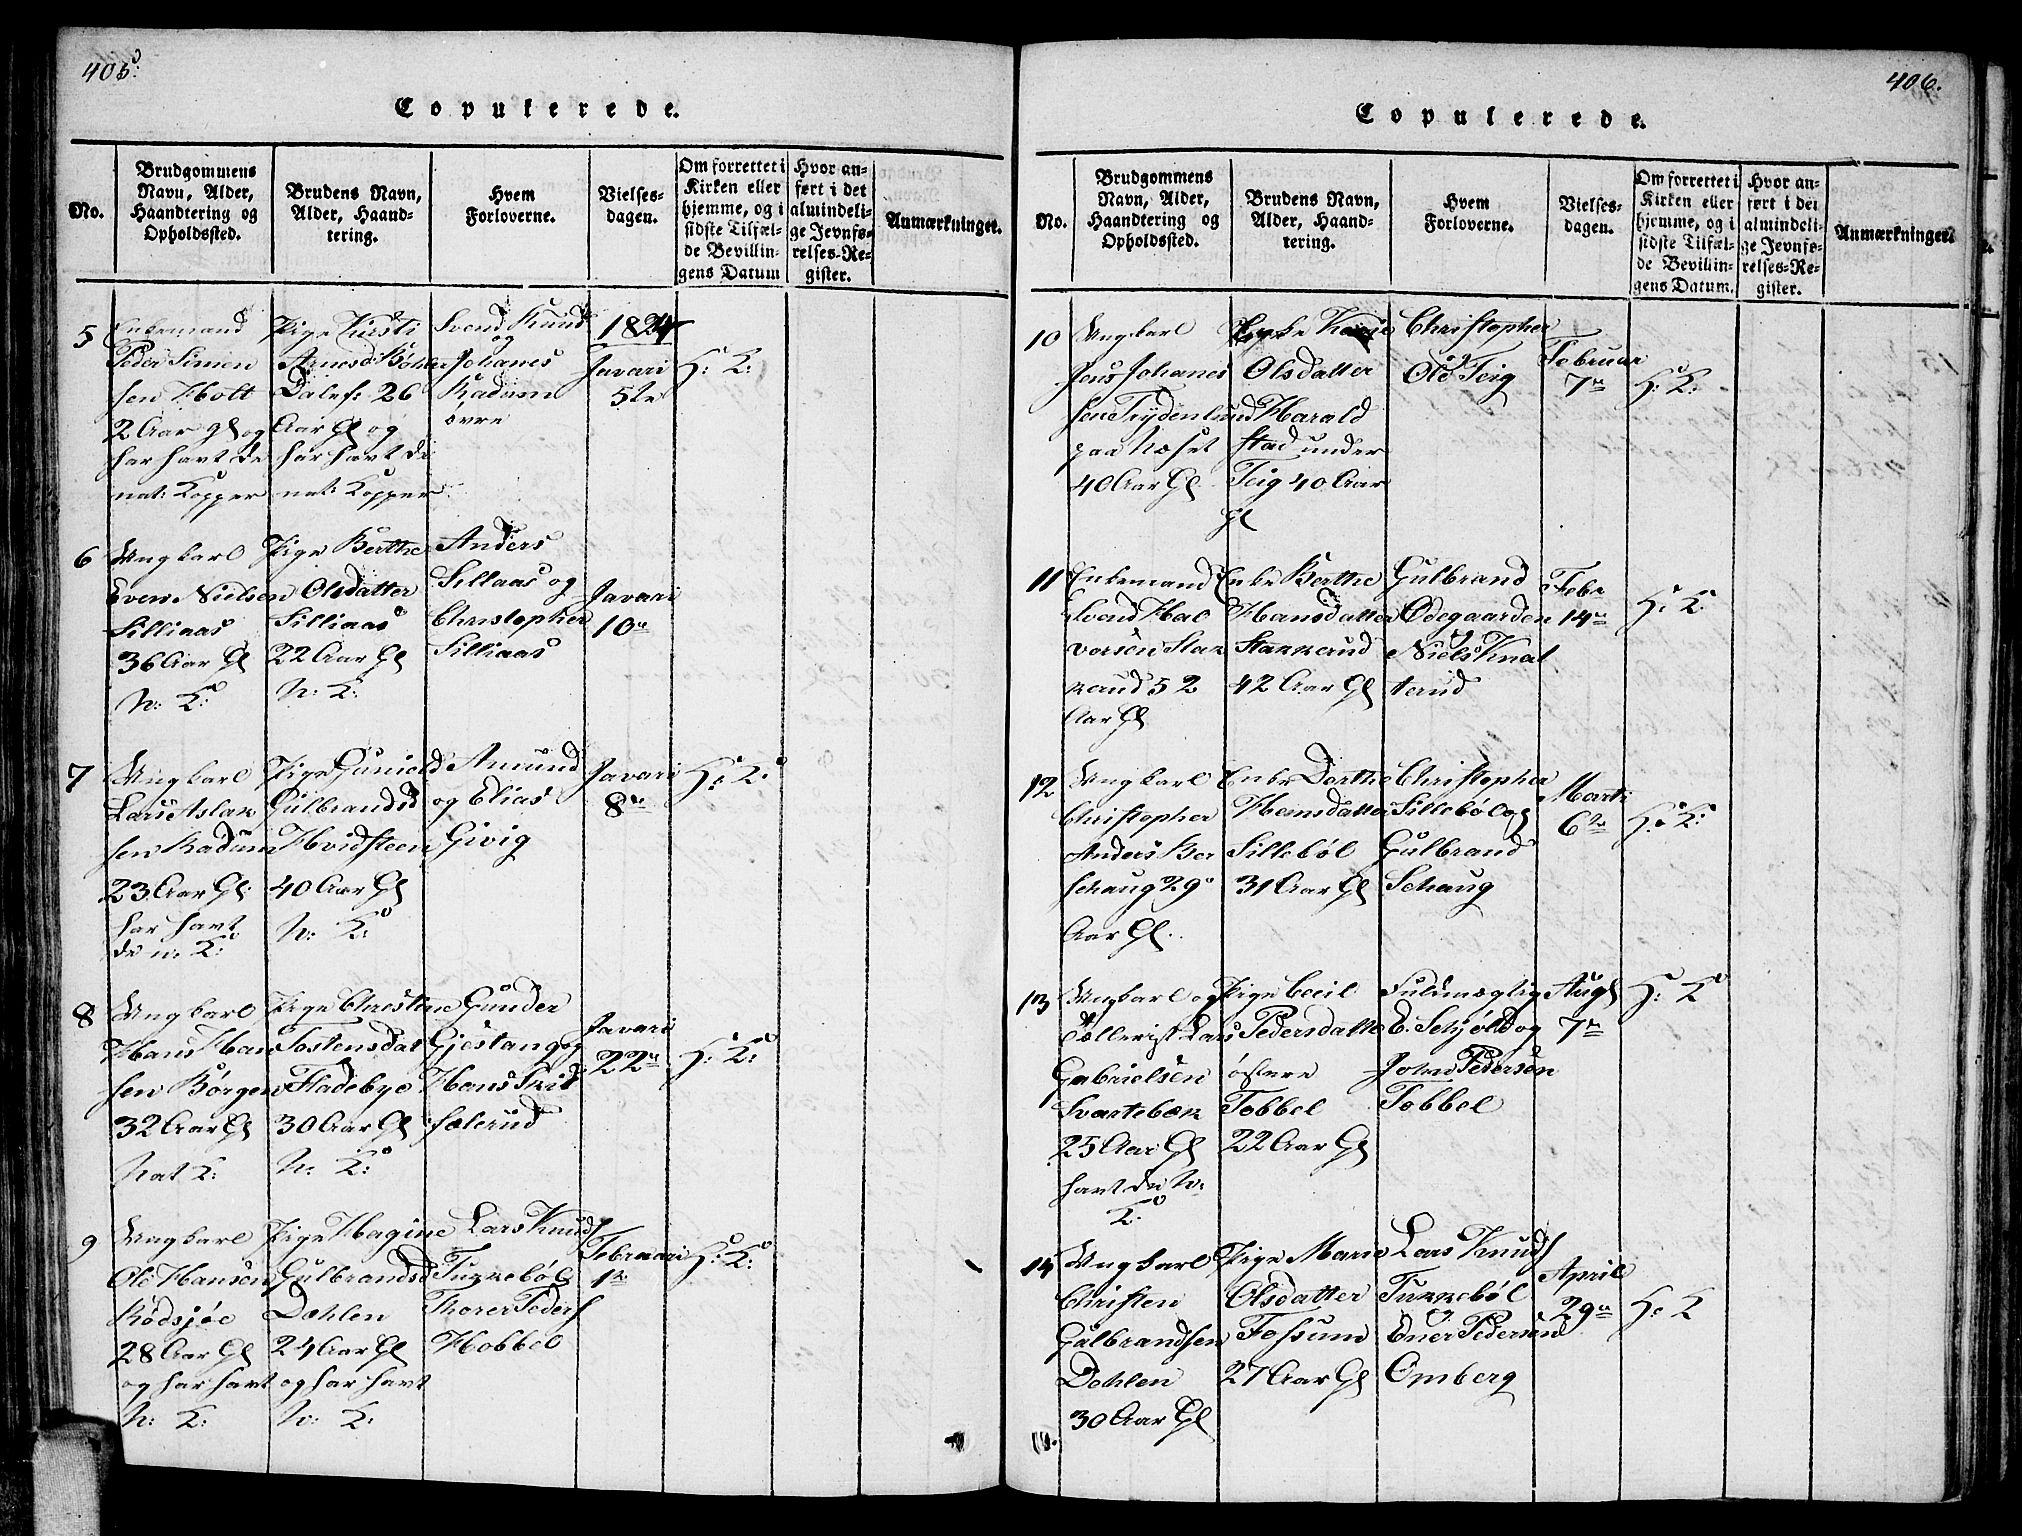 405.
Copulerede.
No.
Brudgommens
Navn, Alder,
Haandtering og
Opholdssted.
Brudens Navn,
Alder, Haand-
tering.
Hvem
Forloverne.
Vielses-
dagen.
Om forrettet i
Kirken eller
hjemme, og i
sidste Tilfæl-
de Bevillin-
gens Datum
Hvor an-
ført i det
almindeli-
ge Jevnfø-
relses-Re-
gister.
Anmærkninger.
5
Enkemand
Peder Simen
sen Holt
2 Aar gl og
har havt de
nat: Kopper
Pige Kirsti
Arnesd:
Dalef: 26
Aar Gl og
har havt de
nat: Kopper
Svend Knud
og
Johanes
Kadum
øvre
1824
Javari
5te
H: K:
6
Ungkarl
Even Nielsen
Silliaas
36 Aar Gl
N: K:
Pige Berthe
Olsdatter
Silliaas
22 Aar Gl
N: K:
Anders
Sillaas og
Christopher
Silliaas
Javari
10de
7
Ungkarl
Lars Aslak
sen Kadum
23 Aar Gl
har havt
de n: K:
Pige Guniold
Gulbrandsd
Hvidsteen
40 Aar Gl
N: K:
Amund
og Elias
Givig
Javari
8de
H: K:
8
Ungkarl
Hans Han
sen Børgen
32 Aar Gl
Nat K:
Pige Christine
Tostensdat
Fladebye
30 Aar Gl
N: K:
Gunder
Gjestang og
Hans Skid
sælerud
Javari
22de
H: K:
9
Ungkarl
Ole Hansen
Rødsjøe
28 Aar Gl
og har havt
N: K:
Pige Hagine
Gulbrandsd
Dæhlen
24 Aar Gl
og har havt
N: K:
Lars Knuds
Tukkebøl
Thorer Peders
Hobbel
Februari
1te
H: K:
406.
Copulerede.
No.
Brudgommens
Navn, Alder,
Haandtering og
Opholdssted.
Brudens Navn,
Alder, Haand-
tering.
Hvem
Forloverne.
Vielses-
dagen.
Om forrettet i
Kirken eller
hjemme, og i
sidste Tilfæl-
de Bevillin-
gens Datum.
Hvor an-
ført i det
almindeli-
ge Jevnfø-
relses-Re-
gister.
Anmærkninger.
10
Ungkarl
Jens Johanes
sen Trydenlund
paa Næset
40 Aar Gl
Olsdatter
Harald
stad under
Teig 40 Aar
Gl
Christopher
Ole Teig
Februar
7de
H: K:
11
Enkemand
Svend Hal
vorsen Stak
kerud 52
Aar Gl
Enke Berthe
Hansdatter
Stakkerud
42 Aar Gl
Gulbrand
Ødegaarden
og
Niels Knat
terud
Febr
14de
H: K:
12
Ungkarl
Christopher
Anders Ber
schaug 29
Aar Gl.
Enke Dorthe
Hemsdatter
Sillebøl
31 Aar Gl
Christopher
Sillebøl og
Gulbrand
Schaug
Marti
6te
H: K:
13
Ungkarl og
Lars
Gabrielsen
Svartebæk
25 Aar Gl
havt de N:
K:
Pige Cecil
Pedersdatte
østere
Tobbel
22 Aar Gl
Fuldmægtig
E. Schjøld og
John Pedersen
Tobbel
Aug
7de
H: K:
14
Ungkarl
Christen
Gulbrandsen
Dehlen
30 Aar Gl
Pige Marie
Olsdatter
Fossum
27 Aar Gl
Lars Knuds
Tukkebøl
og
Pedersen
Omberg
April
29de
H: K